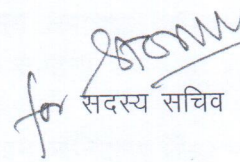 for सदस्य सचिव